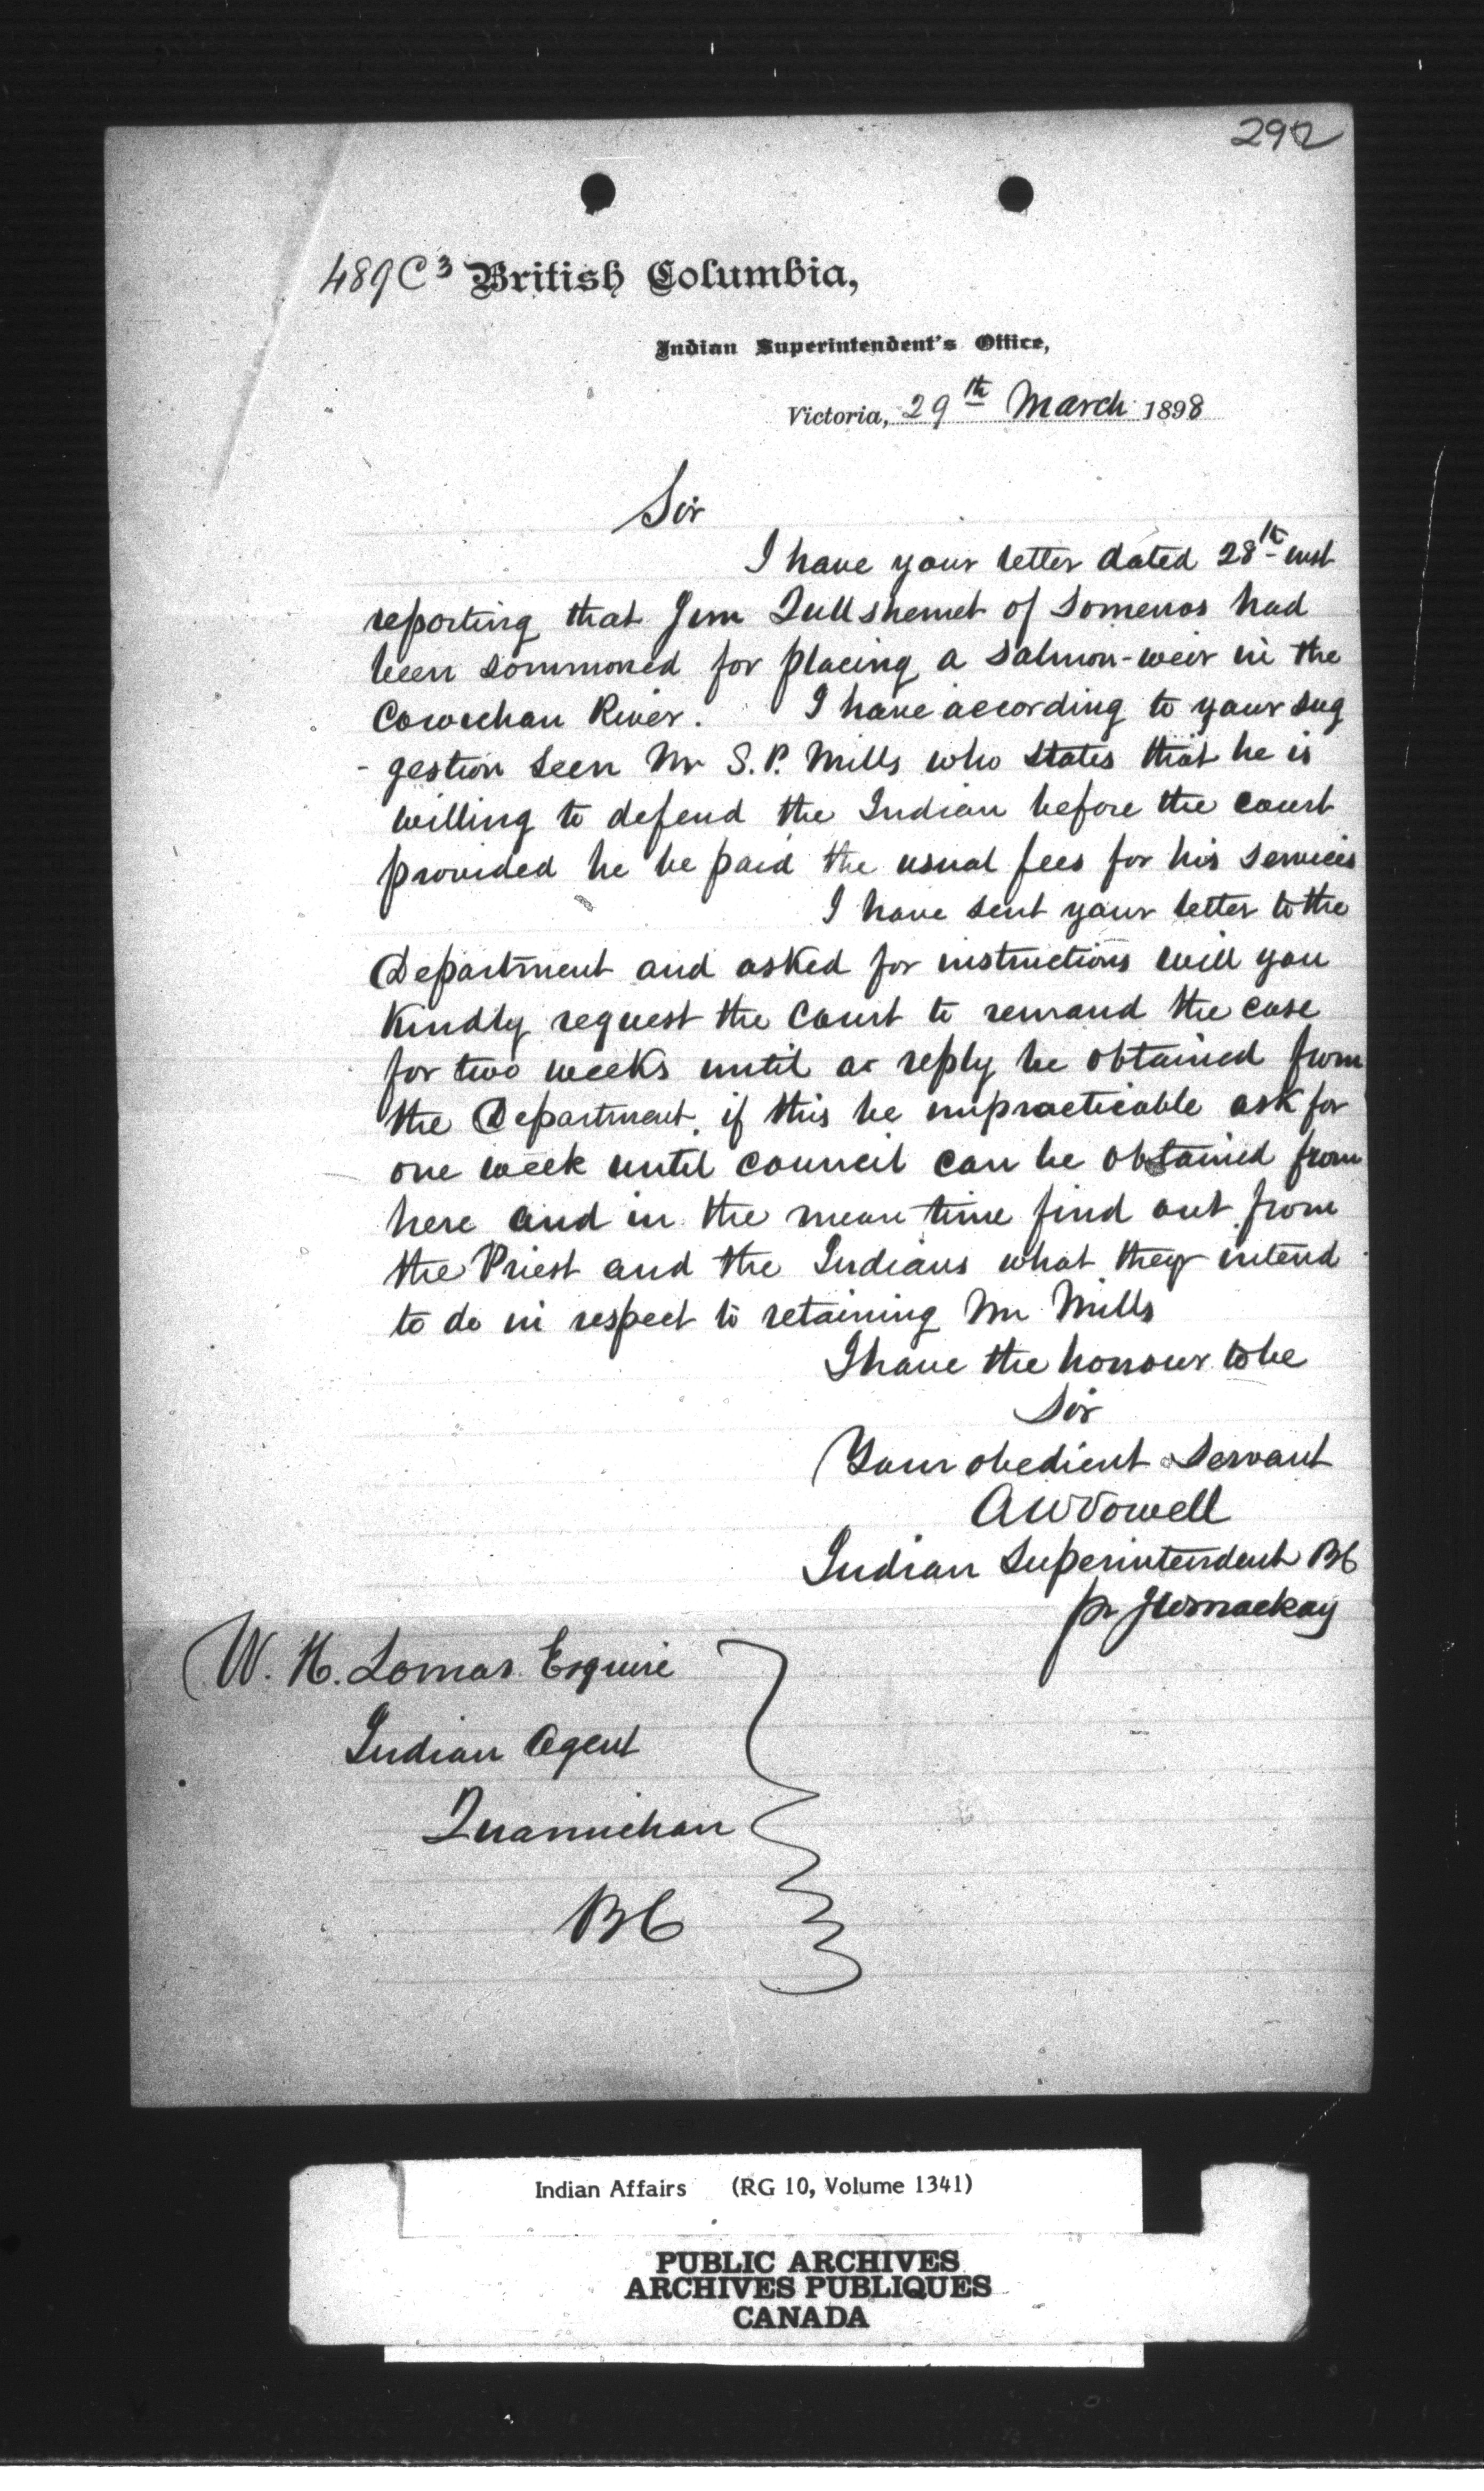 292
489 C3 British Columbia,
Indian Superintendent's Office,
Victoria, 29th March 1898
Sir
I have your letter dated 28th inst
reporting that Jim Qullshemet of Somenos had
been sommoned for placing a salmon-weir in the
Cowichan River. I have according to your sug
- gestion seen Mr S. P. Mills who states that he is
willing to defend the Indian before the court
provided he be paid the usual fees for his services
I have sent your letter to the
Department and asked for instructions will you
kindly request the Court to remand the case
for two weeks until a reply be obtained from
the Department, if this be impracticable ask for
one week until council can be obtained from
here and in the mean time find out from
the Priest and the Indians what they intend
to do in respect to retaining Mr Mills
I have the honour to be
Sir
Your obedient Servant
A W Vowell
Indian Superintendent BC
pr J W Mackay
W. H. Lomas Esquire
Indian Agent
Quamichan
BC
Indian Affairs (RG 10, Volume 1341)
PUBLIC ARCHIVES
ARCHIVES PUBLIQUES
CANADA